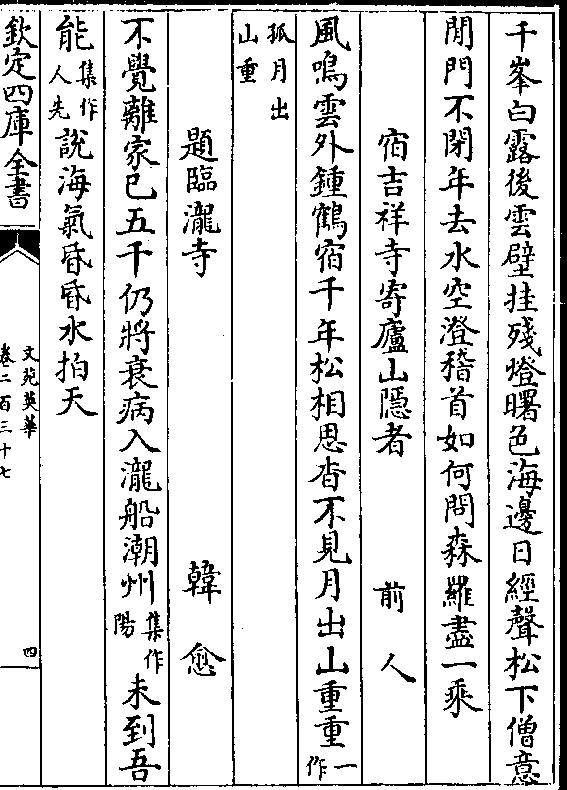 千峯白露後雲壁挂殘燈曙色海邊日經聲松下僧意
閒門不閉年去水空澄稽首如何問森羅盡一乘
宿吉祥寺寄廬山隱者　前人
風鳴雲外鍾鶴宿千年松相思杳不見月出山重重一作
孤月出山重
題臨瀧寺　韓愈
不覺離家已五千仍將衰病入瀧船潮州集作陽未到吾
能集作人先說海氣昏昏水拍天
欽定四庫全書
文苑英華
卷二百三十七
四